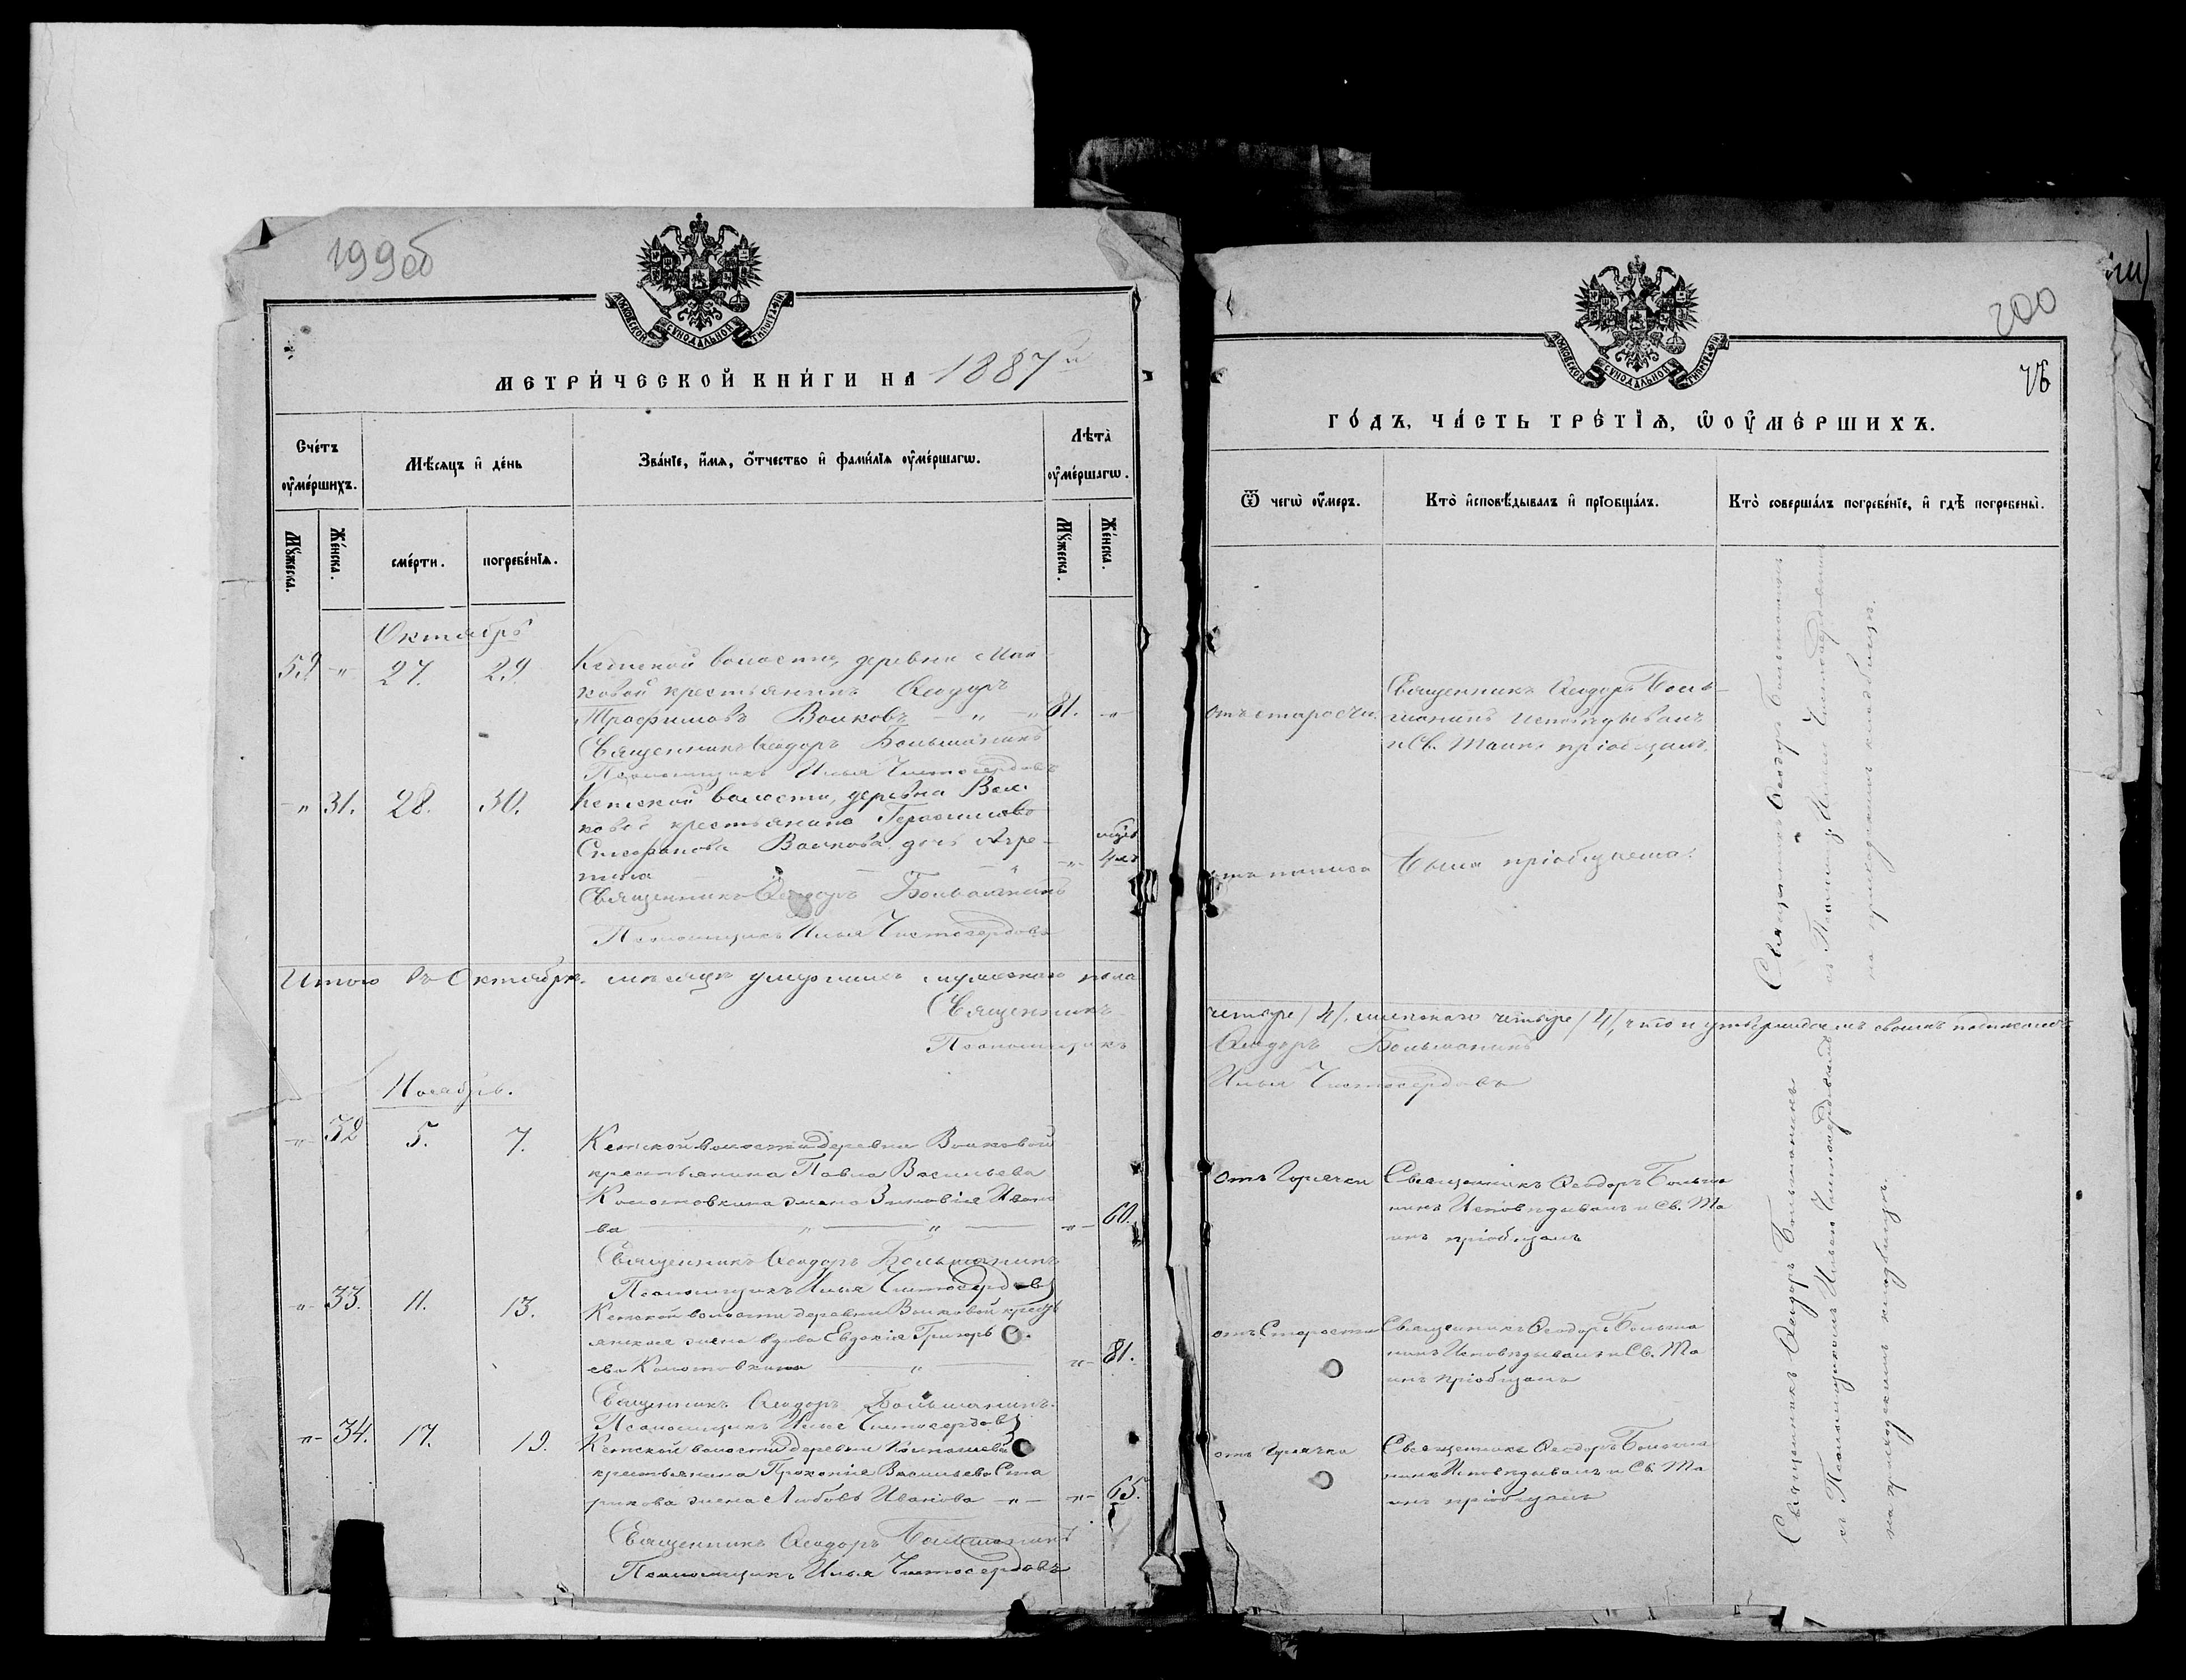 199об
МОСКОВСКОЙ СѴНОДАЛЬНОЙ ТИПОГРАФІИ
МЕТРИ́ЧЕСКОЙ КНИ́ГИ НА 1887й
Сче́тъ ᲂу҆ме́ршихъ.
Мѣ́сяцъ и҆ де́нь
Зва́нїе, и҆́мя, ѻ҆́тчество и҆ фами́лїя ᲂу҆ме́ршагѡ.
Лѣта̀ ᲂу҆ме́ршагѡ.
Мꙋ́жеска.
Же́нска.
сме́рти.
погребе́нїя.
Мꙋ́жеска.
Же́нска.
Октябрь
59 -"- 27. 29. Кетской волости, деревни Мал-
ковой крестьянинъ Ѳеодоръ
Трофимовъ Волковъ - " - " 81. -"-
Священникъ Ѳеодоръ Большанинъ
Псаломщикъ Илья Чистосердовъ
-"- 31. 28. 30. Кетской волости, деревни Вол-
ковой крестьянина Герасима
Стефанова Волкова дочь Агре-
пина -"- 4
Священникъ Ѳеодоръ Большанинъ
Псаломщикъ Илья Чистосердовъ
Итого въ Октябрѣ мѣсяцѣ умершихъ мужескаго пола
Священникъ
Псаломщикъ
Ноябрь.
-"- 32 5. 7. Кетской волости деревни Волковой
крестьянина Павла Васильева
Колотовкина жена Зиновія Ивано
ва " " -"- 60.
Священникъ Ѳеодоръ Большанинъ
Псаломщикъ Илья Чистосердовъ
-"- 33. 11. 13. Кетской волости деревни Волковой крест
янская жена вдова Евдокія Григорь
ева Колотовкина " -"- 81.
Священникъ Ѳеодоръ Большанинъ.
Псаломщикъ Илья Чистосердовъ
-"- 34. 17. 19. Кетской волости деревни
крестьянина Прокопія Васильева Ста
рикова жена Любовь Иванова -"- -"- 65.
Священникъ Ѳеодоръ Большанинъ
Псаломщикъ Илья Чистосердовъ
200
МОСКОВСКОЙ СѴНОДАЛЬНОЙ ТИПОГРАФІИ
ГО́ДЪ, ЧА́СТЬ ТРЕ́ТЇѦ, Ѡ҆ ОУ҆МЕ́РШИХЪ.
Ѿ чегѡ̀ ᲂу҆́меръ.
Кто̀ и҆сповѣ́дывалъ и҆ прїѡбща́лъ.
Кто̀ соверша́лъ погребе́нїе, и҆ гдѣ̀ погребены̀.
отъ старости.
Священникъ Ѳеодоръ Боль-
шанинъ исповѣдывалъ
и Св. Таинъ пріобщалъ.
отъ поноса
Была пріобщаема.
Священникъ Ѳеодоръ Большанинъ
съ Псаломщ. Ильею Чистосердовымъ
на приходскомъ кладбищѣ.
четыре /4/, женскаго четыре /4/, что и утверждаемъ своимъ подписомъ
Ѳеодоръ Большанинъ
Илья Чистосердовъ
отъ Горячки
Священникъ Ѳеодоръ Больша
нинъ Исповѣдывалъ и Св. Та
инъ пріобщалъ
отъ Старости
Священникъ Ѳеодоръ Больша
нинъ Исповѣдывалъ и Св. Та
инъ пріобщалъ
отъ Горячки
Священникъ Ѳеодоръ Больша
нинъ Исповѣдывалъ и Св. Та
инъ пріобщалъ
Священникъ Ѳеодоръ Большанинъ
съ Псаломщикомъ Ильею Чистосердовымъ
на приходскомъ кладбищѣ.